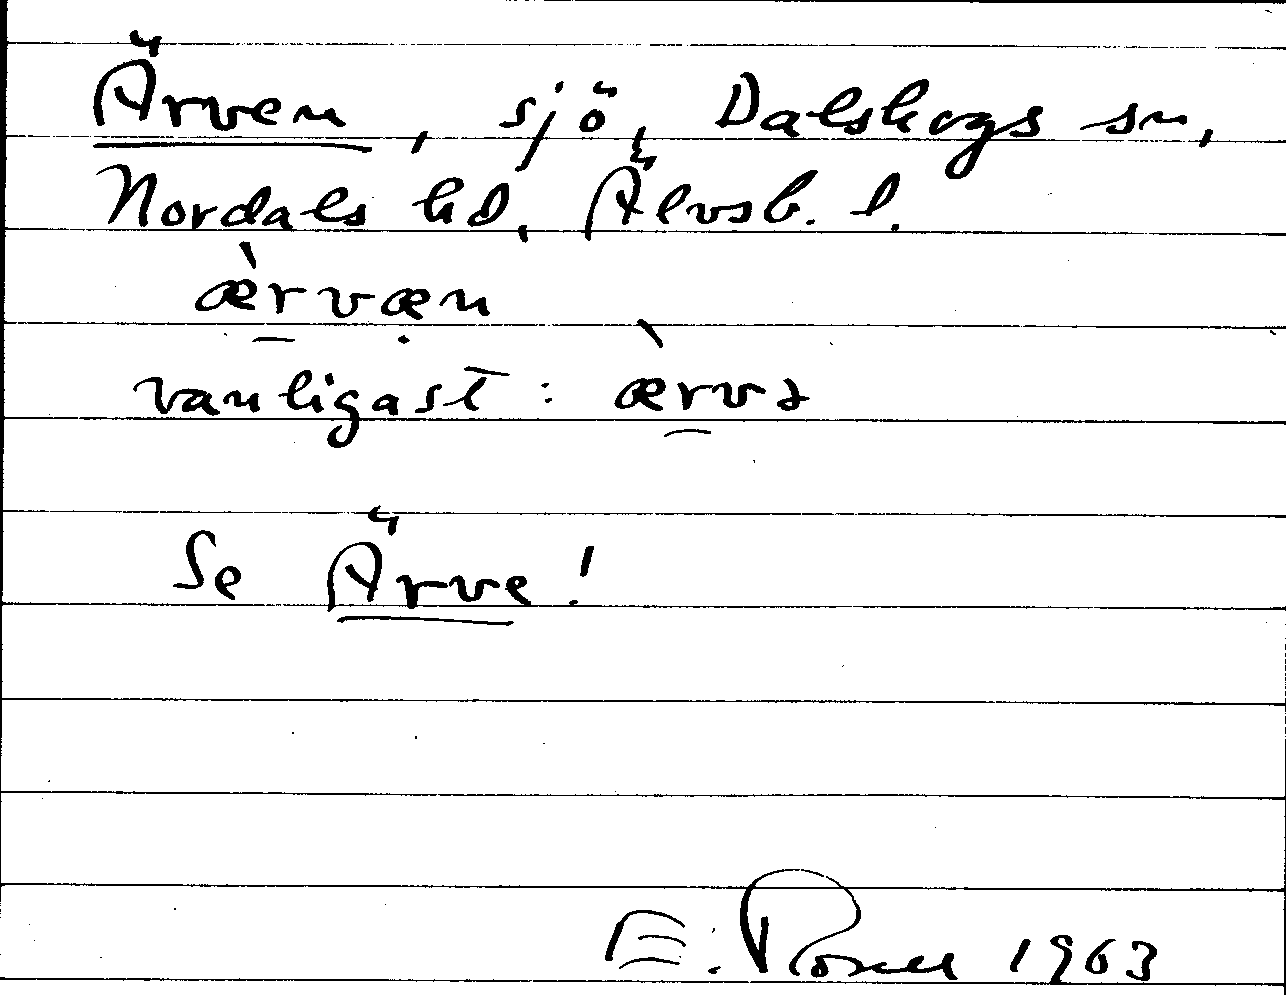 Ärven, sjö, Dalskogs sn,
Nordals hd, Älvsb. l.
æ̀rvæn
vanligast: æ̀rvə
Se Ärve!
E. Rosell 1963